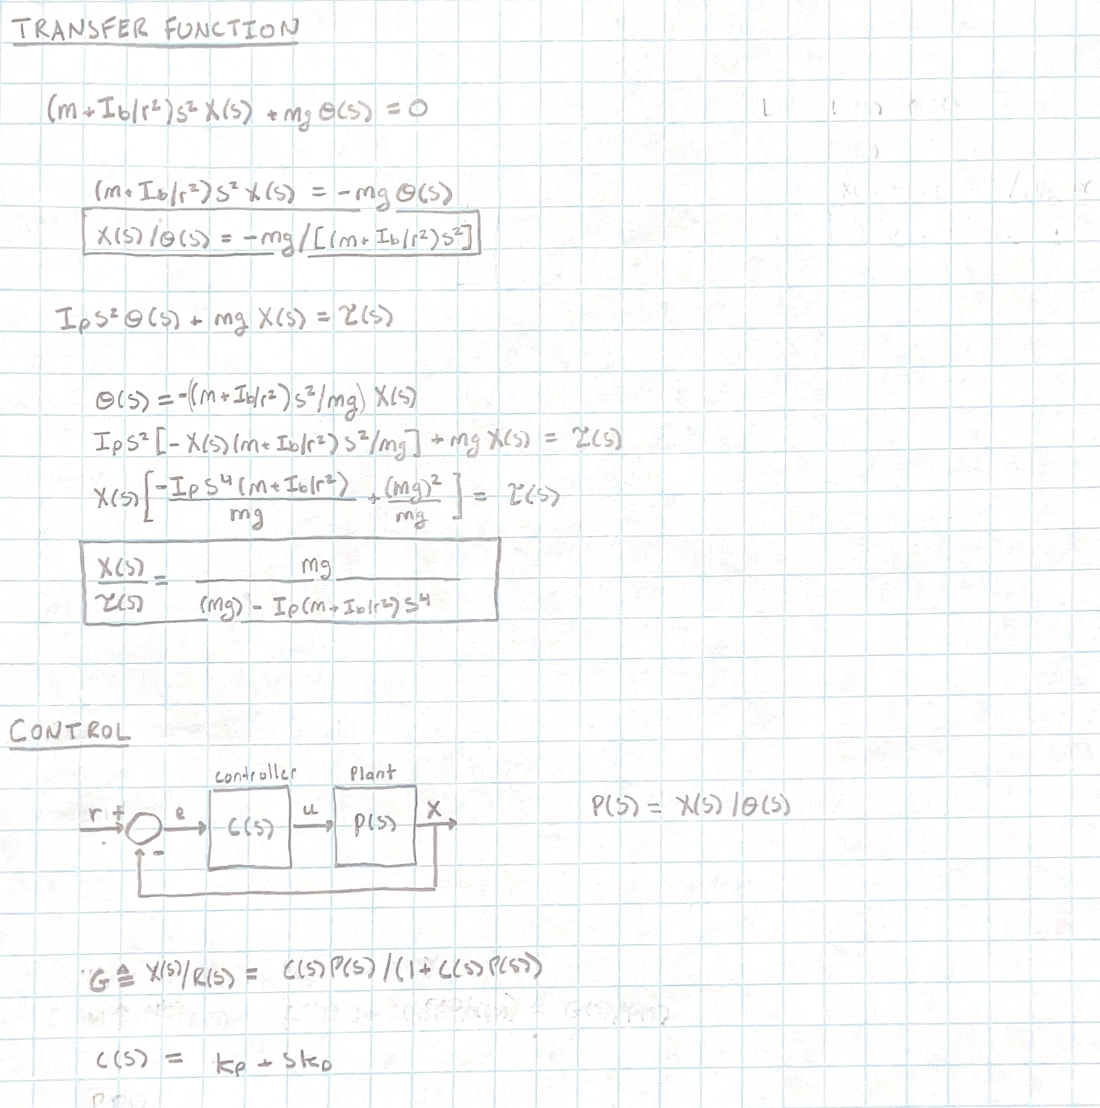 TRANSFER FUNCTION
(m+Ib/r²)s² X(s) + mg Θ(s) = 0
(m+Ib/r²)s² X(s) = -mg Θ(s)
X(s)/Θ(s) = -mg/[(m+Ib/r²)s²]
Ips²Θ(s) + mg X(s) = τ(s)
Θ(s) = -((m+Ib/r²)s²/mg) X(s)
Ips²[-X(s)(m+Ib/r²)s²/mg] + mg X(s) = τ(s)
X(s)[-Ips⁴(m+Ib/r²)/mg + (mg)²/mg] = τ(s)
X(s)/τ(s) = mg/((mg) - Ip(m+Ib/r²)s⁴)
CONTROL
controller Plant
r + e C(s) u P(s) X
-
P(s) = X(s)/Θ(s)
G ≜ X(s)/R(s) = C(s)P(s)/(1+C(s)P(s))
C(s) = kp + skD